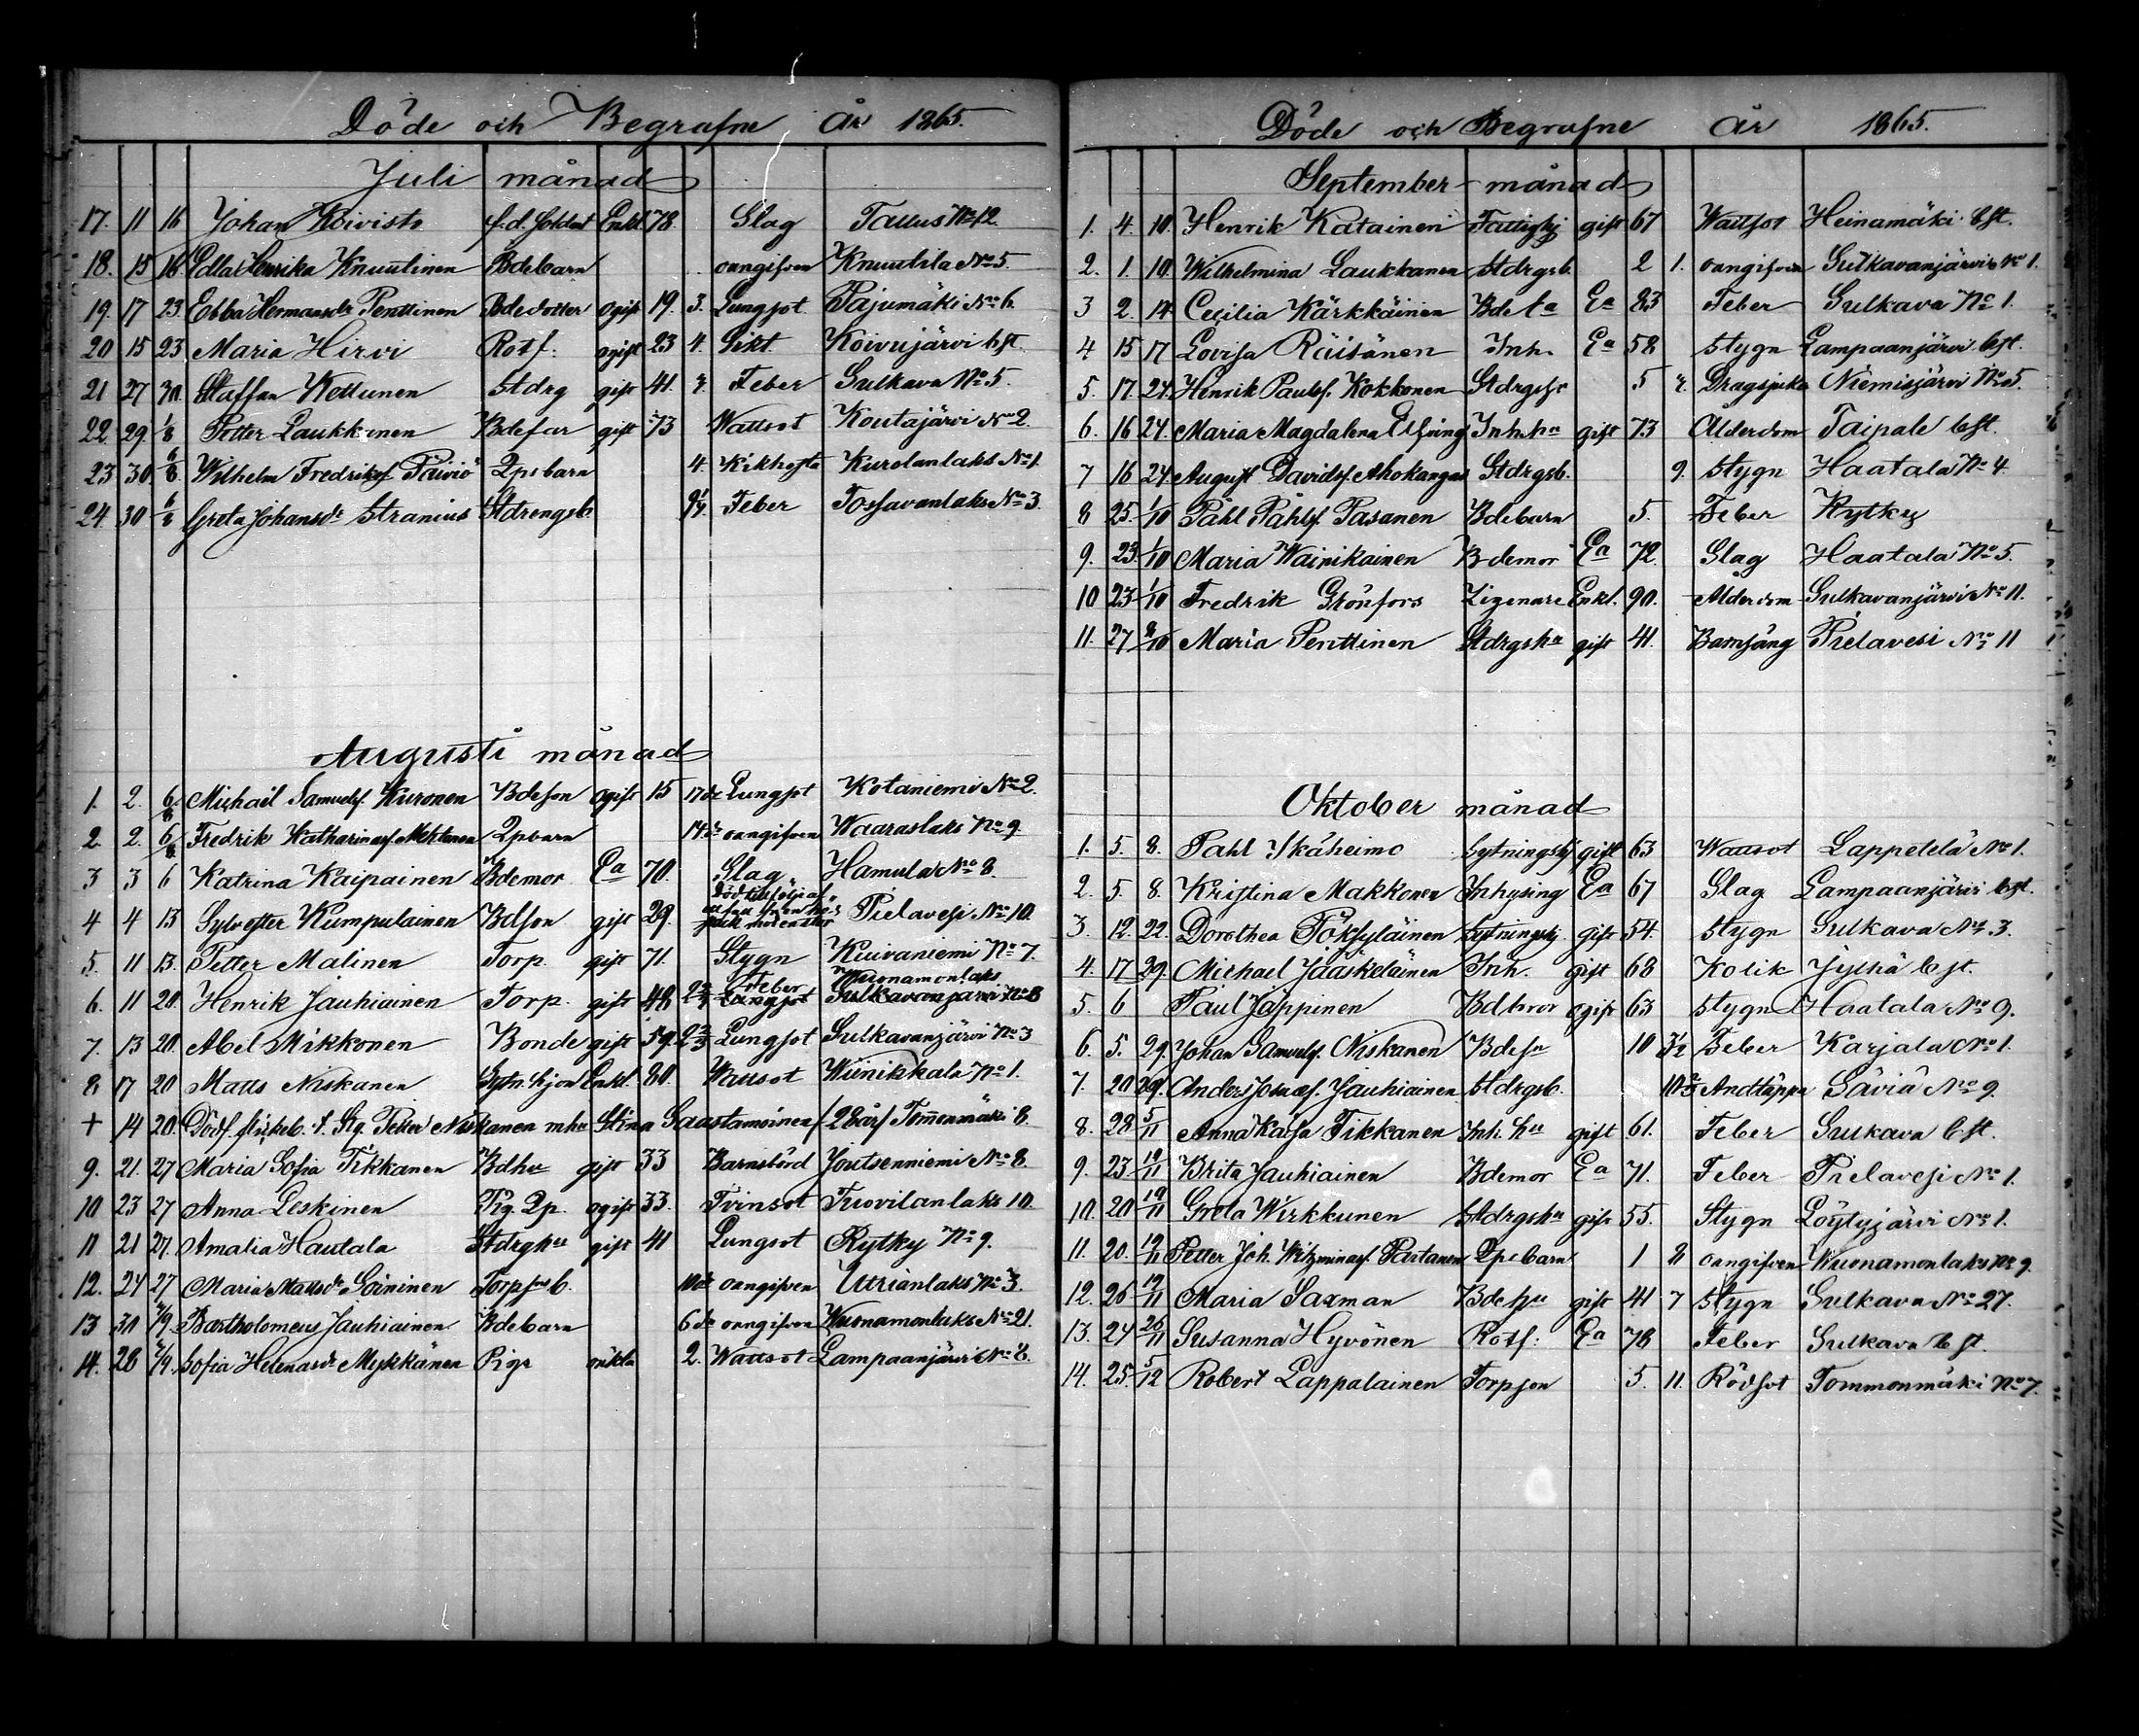 Döde och Begrafne År 1865.
Juli månad
17. 11 16 Johan Koivisto f.d. Soldat Enkl. 78. Slag Tallus No 12.
18. 15 16 Edla Henrika Knuutinen Bdebarn oangifven Knuutila No 5.
19. 17 23. Ebba Hermansdr Penttinen Bdedotter ogift 19. 3. Lungsot Pajumäki No 6.
20 15 23 Maria Hirvi Rotf. ogift 23 4. Sikt. Koivujärvi bst.
21 27 30. Staffan Kettunen Stdrg gift 41. Feber Sulkava No 5.
22. 29. 1/8 Petter Laukkanen Bdefar gift 73 Wattsot Koutajärvi No 2.
23 30 6/8 Wilhelm Fredriksf. Päiviö Qpsbarn 4. Kikhosta Kurolanlaks No 1.
24. 30 6/8 Greta Johansdr Stranius Stdrengsb. Feber Tossavanlaks No 3.
Augusti månad
1. 2. 6/8 Michaël Samuelsf. Kuronen Bdeson ogift 15 17 dr Lungsot Kotaniemi No 2.
2. 2. 6/8 Fredrik Katharinasf. Mehtonen Qpbarn 14 dr oangifven Waaraslaks No 9.
3 3 6 Katrina Kaipainen Bdemor Ea 70. Slag Hamula No 8.
4 4 13 Sylvester Kumpulainen Bdson gift 29. Död till följd af Pielavesi No 10.
5. 11 13. Petter Malinen Torp. gift 71. Stygn Kuivaniemi No 7.
6. 11 20. Henrik Jauhiainen Torp. gift 48 Feber Lungsot Wuonamonlaks Sulkavanjärvi No 8
7. 13 20. Abel Mikkonen Bonde gift 59. Lungsot Sulkavanjärvi No 3
8. 17 20 Matts Niskanen Sytn.hjon Enkl. 80. Wattsot Wiinikkala No 1.
+ 14 20. Dödf. flickeb. f. Stg. Petter Niskanen m hu Stina Saastamoinen f. 28 års Tommonmäki 8.
9. 21. 27 Maria Sofia Tikkanen Bdhu gift 33 Barnsbörd Joutsenniemi No 8.
10 23 27 Anna Leskinen Pig. Qp. ogift 33. Tvinsot Tuovilanlaks 10.
11 21 27. Amalia Hautala Stdrghu gift 41 Lungsot Rytky No 9.
12. 24 27 Maria Mattsdr Soininen Torpsb. 10 dr oangifven Utrianlaks No 3.
13 31 2/9. Bartholomeus Jauhiainen Bdebarn 6 dr oangifven Wuonamonlaks No 21.
14. 28 2/9. Sofia Helenasdr Mykkänen Pigs oäkta 2. Wattsot Lampaanjärvi No 8.
Döde och Begrafne År 1865.
September månad
1. 4. 10. Henrik Katainen Fattighj gift 67 Wattsot Heinämäki bst.
2. 1. 10. Wilhelmina Laukkanen Stdrgsb. 2 1. oangifven Sulkavanjärvi No 1.
3 2. 17. Cecilia Kärkkäinen Bdea Ea 83 Feber Sulkava No 1.
4 15 17 Lovisa Räisänen Inh. Ea 58 Stygn Lampaanjärvi bst.
5. 17. 24. Henrik Paulsf. Kokkonen Stdrgs 5 Dragsjuka Niemisjärvi No 5.
6. 16 24. Maria Magdalena Elfving Inh.hu gift 73. Ålderdom Taipale bst.
7 16 24. August Davidsf. Ahokangas Stdrgsb. 9. Stygn Haatala No 4.
8 25. 1/10 Påhl Påhlsf. Pasanen Bdebarn 5. Feber Rytky
9. 23. 1/10 Maria Wainikainen Bdemor Ea 72. Slag Haatala No 5.
10 23 1/10 Fredrik Grönfors Zigenare Enkl. 90. Ålderdom Sulkavanjärvi No 11.
11. 27 8/10 Maria Penttinen Stdrgshu gift 41. Barnsäng Pielavesi No 11
Oktober månad
1. 5. 8. Pahl Ikäheimo Sytningshj gift 63 Wattsot Lappetelä No 1.
2. 5. 8. Kristina Makkonen Inhysing Ea 67 Slag Lampaanjärvi bst.
3. 12. 22. Dorothea Pöksyläinen Sytningshj. gift 54. Stygn Sulkava No 3.
4. 17 29. Michael Jääskeläinen Inh. gift 68 Kolik Jylhä bst.
5. 6 Paul Jäppinen Bdbror ogift 63 Stygn Haatala No 9.
6. 5. 29. Johan Samuelsf. Niskanen Bdesn 10 Feber Karjala No 1.
7. 20 29. Anders Josuaef. Jauhiainen Stdrgsb. Andtäppa Säviä No 9.
8. 28 5/11 Anna Kaisa Tikkanen Inh.hu gift 61. Feber Sulkava bst.
9. 23. 19/11 Brita Jauhiainen Bdemor Ea 71. Feber Pielavesi No 1.
10. 20 19/11 Greta Wirkkunen Stdrgshu gift 55. Stygn Löytyjärvi No 1.
11. 20. 19/11 Petter Joh. Wilhminasf. Partanen Qpsbarn 1 8 oangifven Wuonamonlaks No 9.
12. 26 19/11 Maria Saxman Bdehu gift 41 7 Stygn Sulkava No 27.
13. 24 26/11 Susanna Hyvönen Rotf. Ea 78 Feber Sulkava bst.
14. 25. 5/12 Robert Lappalainen Torpson 5. 11. Rödsot Tommonmäki No 7.